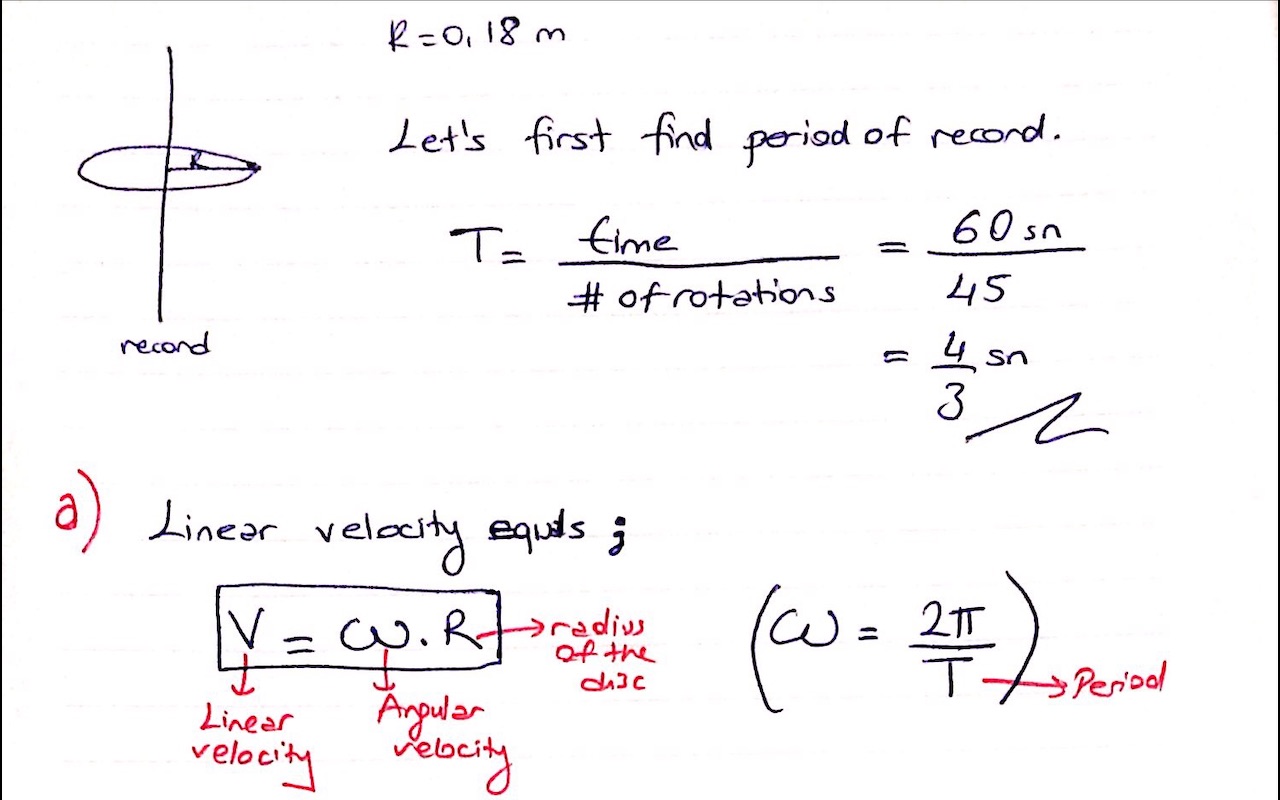 R = 0,18 m
R
record
Let's first find period of record.
T = time / # of rotations = 60 sn / 45
= 4/3 sn
a) Linear velocity equls ;
V = ω . R → radius of the disc
Linear velocity
Angular velocity
(ω = 2π / T) → Period